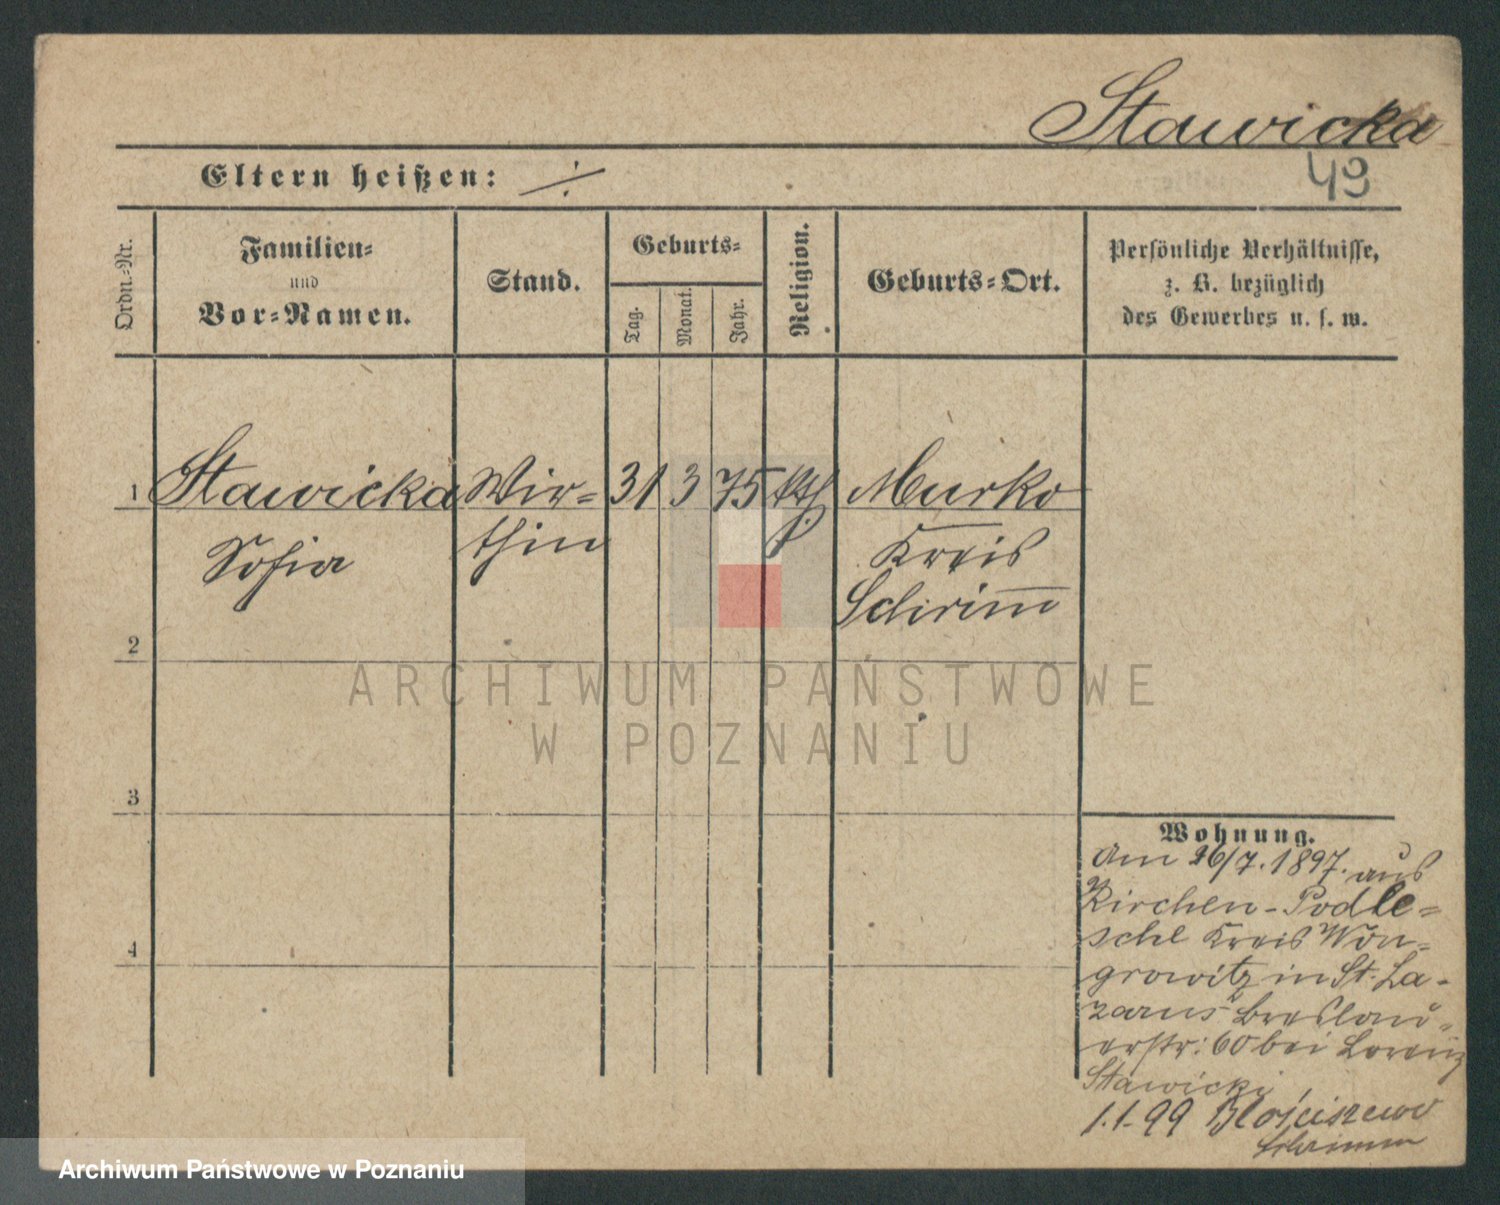 Stawicka
49
Eltern heißen: ./.
Ordn.-Nr.
Familien-
und
Vor-Namen.
Stand.
Geburts-
Tag.
Monat.
Jahr.
Religion.
Geburts-Ort.
Persönliche Verhältnisse,
z. B. bezüglich
des Gewerbes u. s. w.
1 Stawicka Wir- 31 3 75 kth. Murko
Sofia thin Kreis
Schrimm
2
3
4
Wohnung.
Am 26/7. 1897. aus
Kirchen-Podle-
sche Kreis Won-
growitz in St. La-
zarus Breslau-
erstr: 60 bei Lorenz
Stawicki
1.1.99 Błociszewo
Schrimm
ARCHIWUM PAŃSTWOWE
W POZNANIU
Archiwum Państwowe w Poznaniu